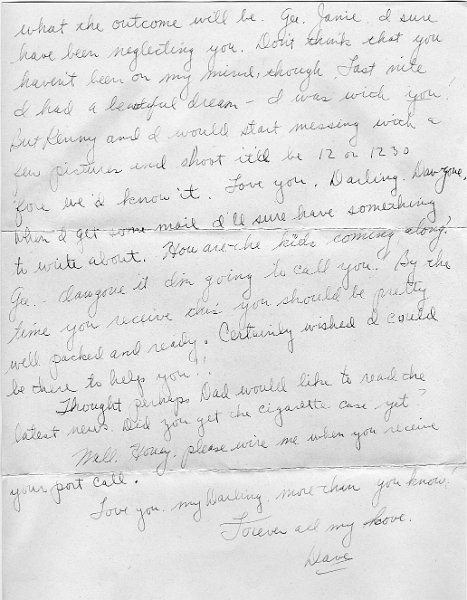 what the outcome will be. Gee, Janie, I sure
have been neglecting you. Don't think that you
haven't been on my mind, though. Last nite
I had a beautiful dream - I was with you!
But Kenny and I would start messing with a
few pictures and shoot it'll be 12 or 1230
'fore we'd know it. Love you, Darling. Dawgone,
when I get some mail I'll sure have something
to write about. How are the kids coming along?
Gee - dawgone it I'm going to call you! By the
time you receive this you should be pretty
well packed and ready. Certainly wished I could
be there to help you!!
Thought perhaps Dad would like to read the
latest news. Did you get the cigarette case yet?
Well, Honey, please wire me when you receive
your port call.
Love you, my Darling, more than you know!
Forever all my love,
Dave